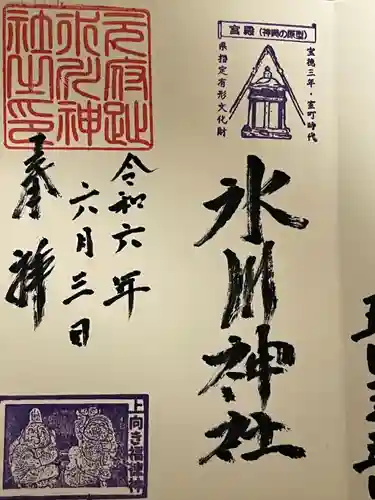 宮殿(神輿の原型)
宝徳三年・室町時代
県指定有形文化財
氷川神社
令和六年
六月三日
奉拝
元府趾
氷川神
社之印
上向き福神